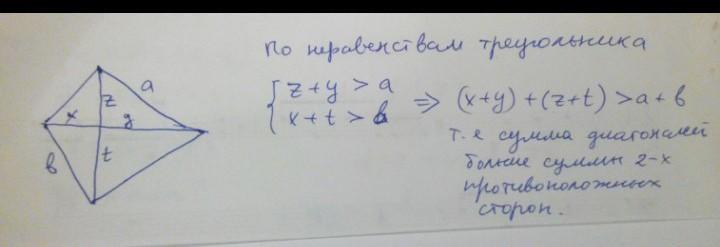 По неравенствам треугольника
a
z
x
y
t
в
{ z + y > a
x + t > в
⇒ (x+y) + (z+t) > a + в
т.е сумма диагоналей
больше суммы 2-х
противоположных
сторон.